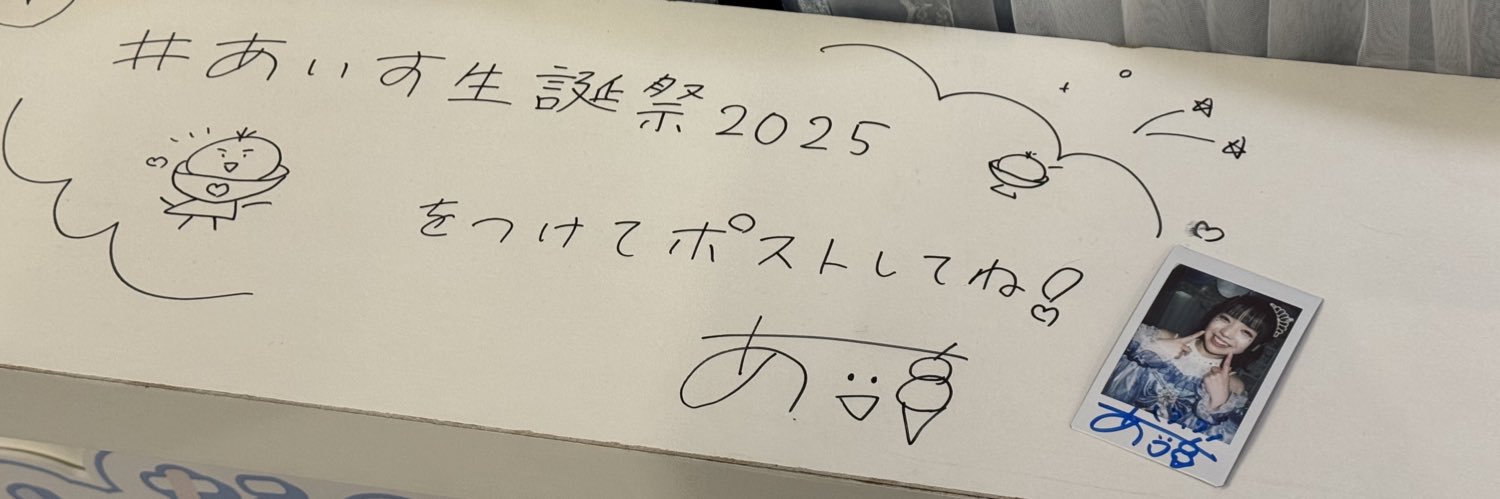 #あいす生誕祭2025
をつけてポストしてね!
あ
あ